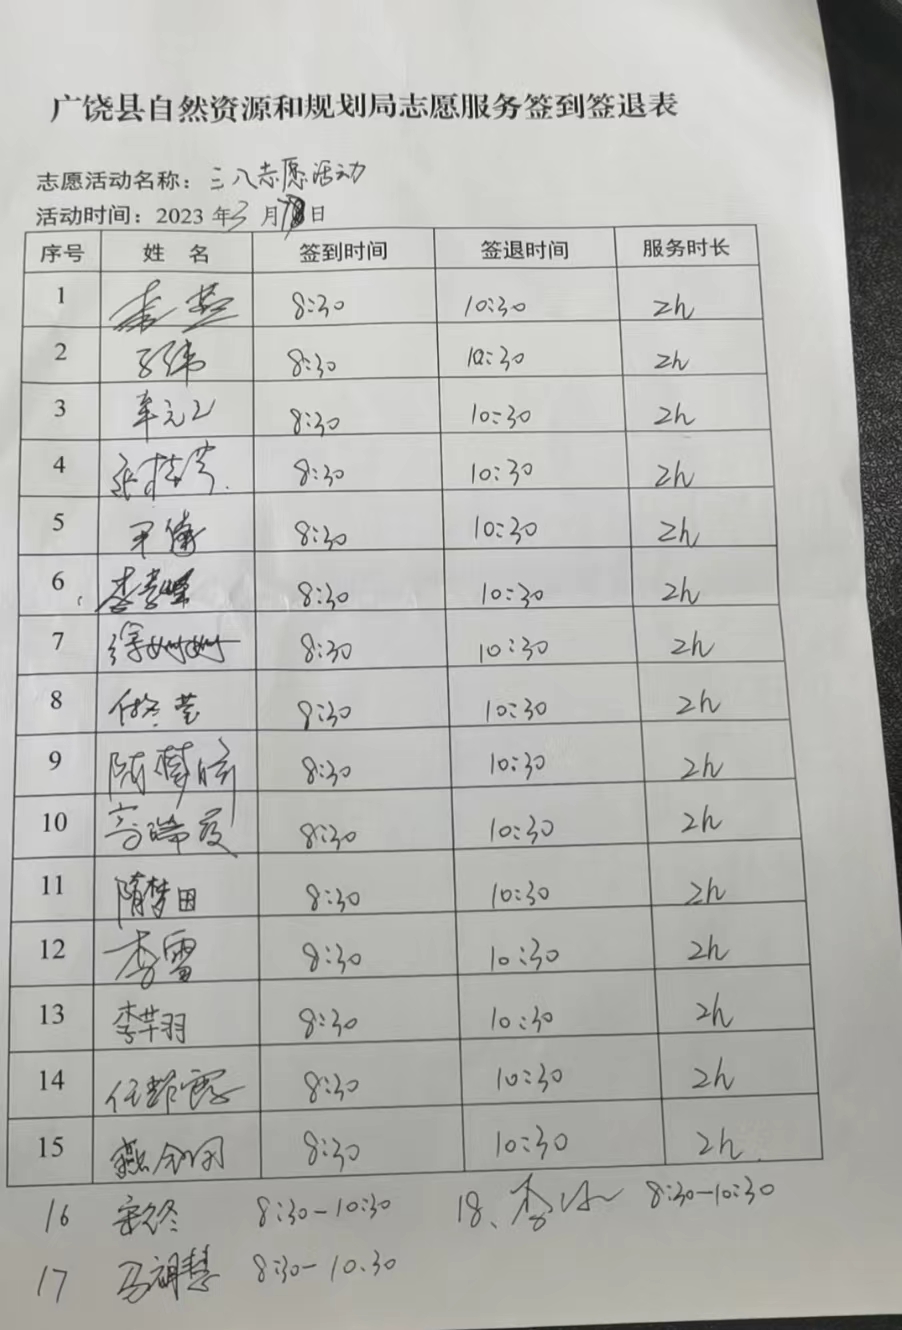 广饶县自然资源和规划局志愿服务签到签退表
志愿活动名称：三八志愿活动
活动时间：2023年3月8日
序号 姓名 签到时间 签退时间 服务时长
1 8:30 10:30 2h
2 8:30 10:30 2h
3 8:30 10:30 2h
4 8:30 10:30 2h
5 8:30 10:30 2h
6 8:30 10:30 2h
7 徐姗姗 8:30 10:30 2h
8 8:30 10:30 2h
9 8:30 10:30 2h
10 8:30 10:30 2h
11 隋梦田 8:30 10:30 2h
12 李雪 8:30 10:30 2h
13 李芊羽 8:30 10:30 2h
14 8:30 10:30 2h
15 8:30 10:30 2h
16 8:30-10:30 18、李 8:30-10:30
17 8:30-10.30